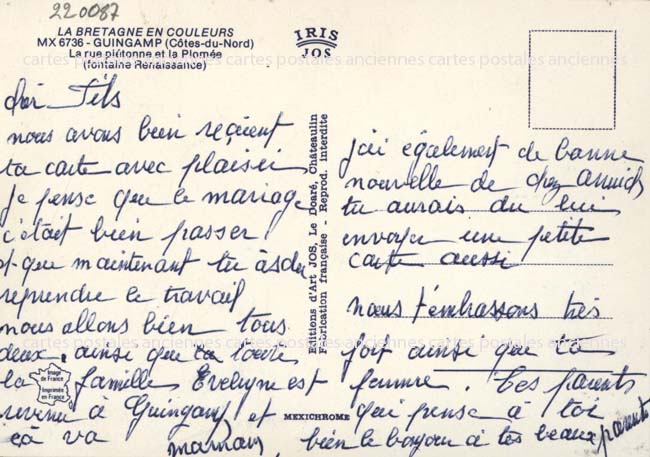 220087
LA BRETAGNE EN COULEURS
MX 6736 - GUINGAMP (Côtes-du-Nord)
La rue piétonne et la Plomée
(fontaine Renaissance)
IRIS
JOS
cartes postales anciennes cartes postales anciennes cartes postales anciennes
Fils
nous avons bien reçient
ta carte avec plaisir
je pense que le mariage
c'était bien passer
et que maintenant tu às du
reprendre le travail
nous allons bien tous
deux. ainsi que ta
la famille Evelyne est
revenu à Guingamp et
çà va maman
Image de France
Imprimée en France
Editions d'Art JOS, Le Doaré, Châteaulin
Fabrication française - Reprod. interdite
MEXICHROME
j'ai également de bonne
nouvelle de chez Annick
tu aurais du lui
envoyer une petite
carte aussi
nous t'embrassons très
fort ainsi que ta
femme. Tes parents
qui pense à toi
bien le bonjour à tes beaux parents